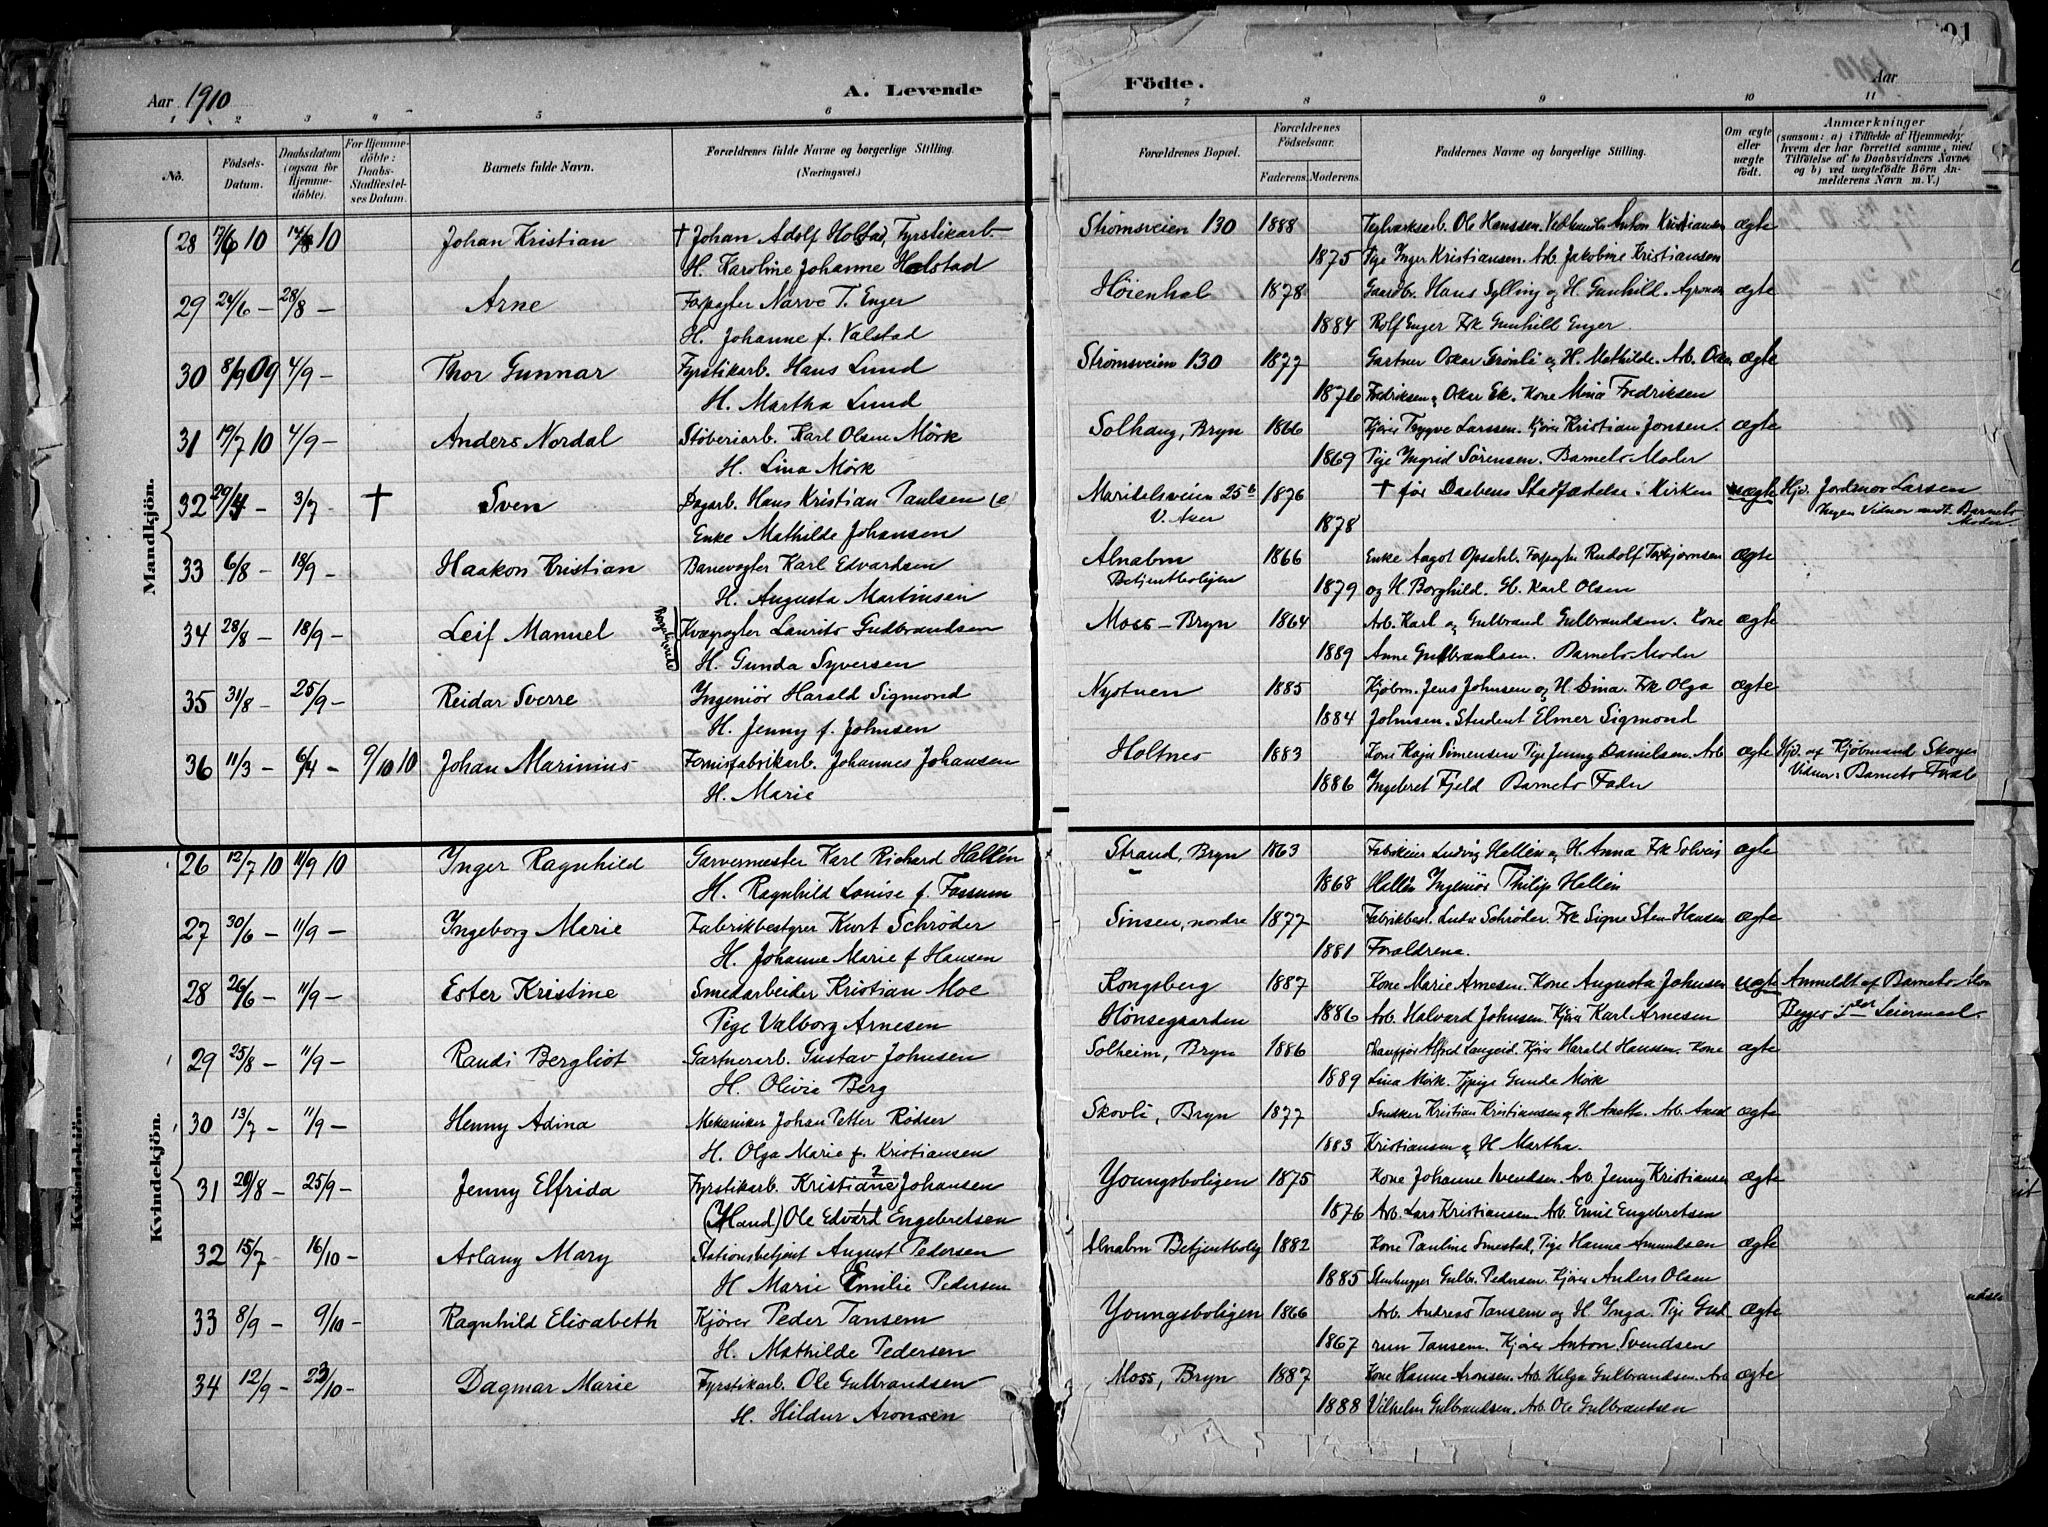 Aar 1910
A. Levende
Födte.
Aar
1 2 3 4 5 6 7 8 9 10 11
No.
Födsels-Datum.
Daabsdatum (ogsaa for Hjemme-döbte).
For Hjemme-döbte: Daabs-Stadfæstel-ses Datum.
Barnets fulde Navn.
Forældrenes fulde Navne og borgerlige Stilling.
(Næringsvei.)
Forældrenes Bopæl.
Forældrenes Födselsaar.
Faderens. Moderens.
Faddernes Navne og borgerlige Stilling.
Om ægte eller uægte födt.
Anmærkninger
(saasom: a) i Tilfælde af Hjemmedåb hvem der har forrettet samme, med Tilföielse af to Daabsvidners Navne, og b) ved uægtefödte Börn An-melderens Navn m. V.)
Mandkjön.
28 17/6 10 14/8 10 Johan Kristian † Johan Adolf Holstad, Fyrstikarb. Strømsveien 130 1888 Teglværksarb. Ole Hanssen. Anton Kristiansen ægte
H. Karoline Johanne Holstad 1875 Pige Inger Kristiansen. Arb. Jakobine Kristiansen
29 24/6 – 28/8 – Arne Forpagter Narve T. Enger Høienhal 1878 Gaardbr. Hans Sylling og H. Gunhild. Agronom ægte
H. Johanne f. Valstad 1884 Rolf Enger Frk Gunhild Enger.
30 8/9 09 4/9 – Thor Gunnar Fyrstikarb. Hans Lund Strømsveien 130 1877 Gartner Oskar Grønli og H. Mathilde. Arb. Oskar ægte
H. Martha Lund 1876 Fredriksen, Oskar Ek. Kone Mina Fredriksen
31 19/7 10 4/9 – Anders Nordal Støberiarb. Karl Olsen Mörk Solhaug, Bryn 1866 Kjører Trygve Larssen. Kjører Kristian Jonsen. ægte
H. Lina Mörk 1869 Pige Ingrid Sørensen. Barnets Moder
32 29/4 – 3/7 † Sven Dagarb. Hans Kristian Paulsen Maridalsveien 25 b 1876 † før Daabens Stadfæstelse i Kirken uægte Hjd. Jordmor Larsen
Enke Mathilde Johansen V. Aker 1878 Ingen Vidner undt. Barnets Moder
33 6/8 – 18/9 – Haakon Kristian Banevogter Karl Edvardsen Alnabru 1866 Enke Aagot Opsahl. Forpagter Rudolf Torbjørnsen ægte
H. Augusta Martinsen Betjentboligen 1879 og H. Borghild. H. Karl Olsen
34 28/8 – 18/9 – Leif Manuel Kvægrøgter Laurits Gudbrandsen Moss – Bryn 1864 Arb. Karl og Gulbrand Gulbrandsen. Kone ægte
H. Gunda Syversen 1889 Anne Gulbrandsen. Barnets Moder
35 31/8 – 25/9 – Reidar Sverre Ingeniør Harald Sigmond Nystuen 1885 Kjøbm. Jens Johnsen og H. Dina. Frk Olga ægte
H. Jenny f. Johnsen 1884 Johnsen. Student Elmer Sigmond
36 11/3 – 6/4 – 9/10 10 Johan Marinius Fernisfabrikarb. Johannes Johansen Holtnes 1883 Kone Kaja Simensen Pige Jenny Danielsen. Arb ægte Hjd. af Kjøbmand Skøyen
H. Marie 1886 Ingebret Fjeld Barnets Fader Vidner: Barnets Foræl
Kvindekjön.
26 12/7 10 11/9 10 Inger Ragnhild Garvermester Karl Richard Hallén Strand, Bryn 1863 Fabrikeier Ludvig Hallén og H. Anna Frk Solveig ægte
H. Ragnhild Louise f. Fossum 1868 Hallén Ingeniør Philip Hallén
27 30/6 – 11/9 – Ingeborg Marie Fabrikbestyrer Kurt Schrøder Sinsen, nordre 1877 Fabrikbest. Schrøder. Frk Signe Sten Hansen ægte
H. Johanne Marie f Hansen 1881 Forældrene.
28 26/6 – 11/9 – Ester Kristine Smedarbeider Kristian Moe Kongsberg 1887 Kone Marie Arnesen. Kone Augusta Johnsen uægte Anmeldt af Barnets Mor
Pige Valborg Arnesen Hønsegaarden 1886 Arb. Halvard Johnsen. Kjører Karl Arnesen Begges 1ste Leiermaal.
29 25/8 – 11/9 – Randi Bergliot Gartnerarb. Gustav Johnsen Solheim, Bryn 1886 Chauffør Alfred Langeid. Kjører Harald Hansen. Kone ægte
H. Olivie Berg 1889 Lina Mørk. Tjpige Gunda Mørk
30 13/7 – 11/9 – Henny Adina Mekaniker Johan Petter Rödser Skovli, Bryn 1877 Snekker Kristian Kristiansen og H. Anethe. Arb. Axel ægte
H. Olga Marie f. Kristiansen 1883 Kristiansen og H Martha.
31 20/8 – 25/9 – Jenny Elfrida Fyrstikarb. Kristiane Johansen 2 Youngsboligen 1875 Kone Johanne Svendsen Arb. Jenny Kristiansen ægte
(Mand) Ole Edvard Engebretsen 1 1876 Arb. Lars Kristiansen. Arb. Emil Engebretsen
32 15/7 16/10 – Aslaug Mary Stationsbetjent August Pedersen Alnabru Betjentbolig 1882 Kone Pauline Smestad, Pige Hanna Amundsen ægte
H Marie Emilie Pedersen 1885 Stenhugger Gulbr. Pedersen. Kjører Anders Olsen
33 8/9 – 9/10 – Ragnhild Elisabeth Kjører Peder Tansem Youngsboligen 1866 Arb. Andreas Tansem og H. Inga. Pige Gud- ægte
H. Mathilde Pedersen 1867 run Tansem. Kjører Anton Svendsen
34 12/9 – 23/10 – Dagmar Marie Fyrstikarb. Ole Gulbrandsen Moss, Bryn 1887 Kone Hanna Aronsen. Arb. Helga Gulbrandsen. Arb ægte
H. Hildur Aronsen 1888 Vilhelm Gulbrandsen. Arb. Ole Gulbrandsen
Kvindekjön